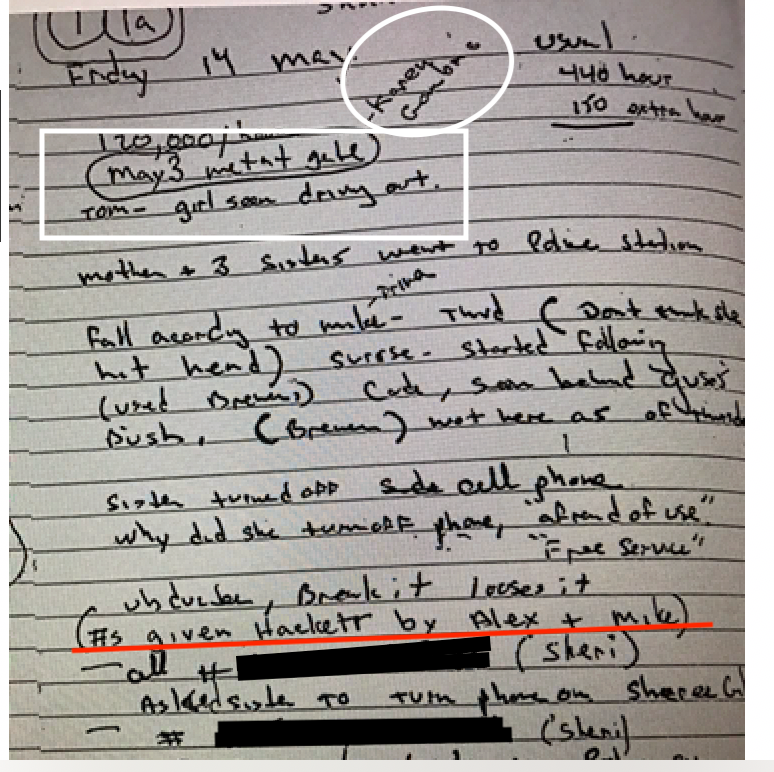 1 1a
Friday 14 may.
usual
440 hour
150 extra hour
120,000/
May 3 met at gate
Tom- girl seen driving out.
mother + 3 sisters went to Police station
Fall acordy to mike- Third (Dont think she
hit head) started Following
(used code, seen behind Guses
Bush, not here as of
sister turned off side cell phone
why did she turn off phone, "afraid of use"
"Free Service"
Break it looses it
(#s given Hackett by Alex + Mike)
- all # (Sheri)
Asked siste TO TURN phone on
- # (Sheri)